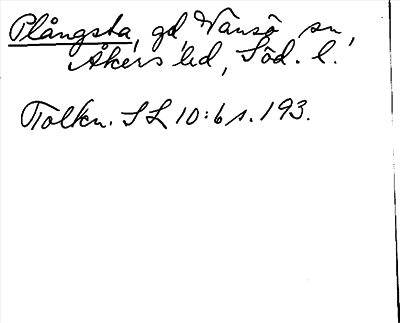 Plångsta, gd, Vansö sn,
Åkers hd, Söd. l.
Tolkn. SL 10:6 s. 193.